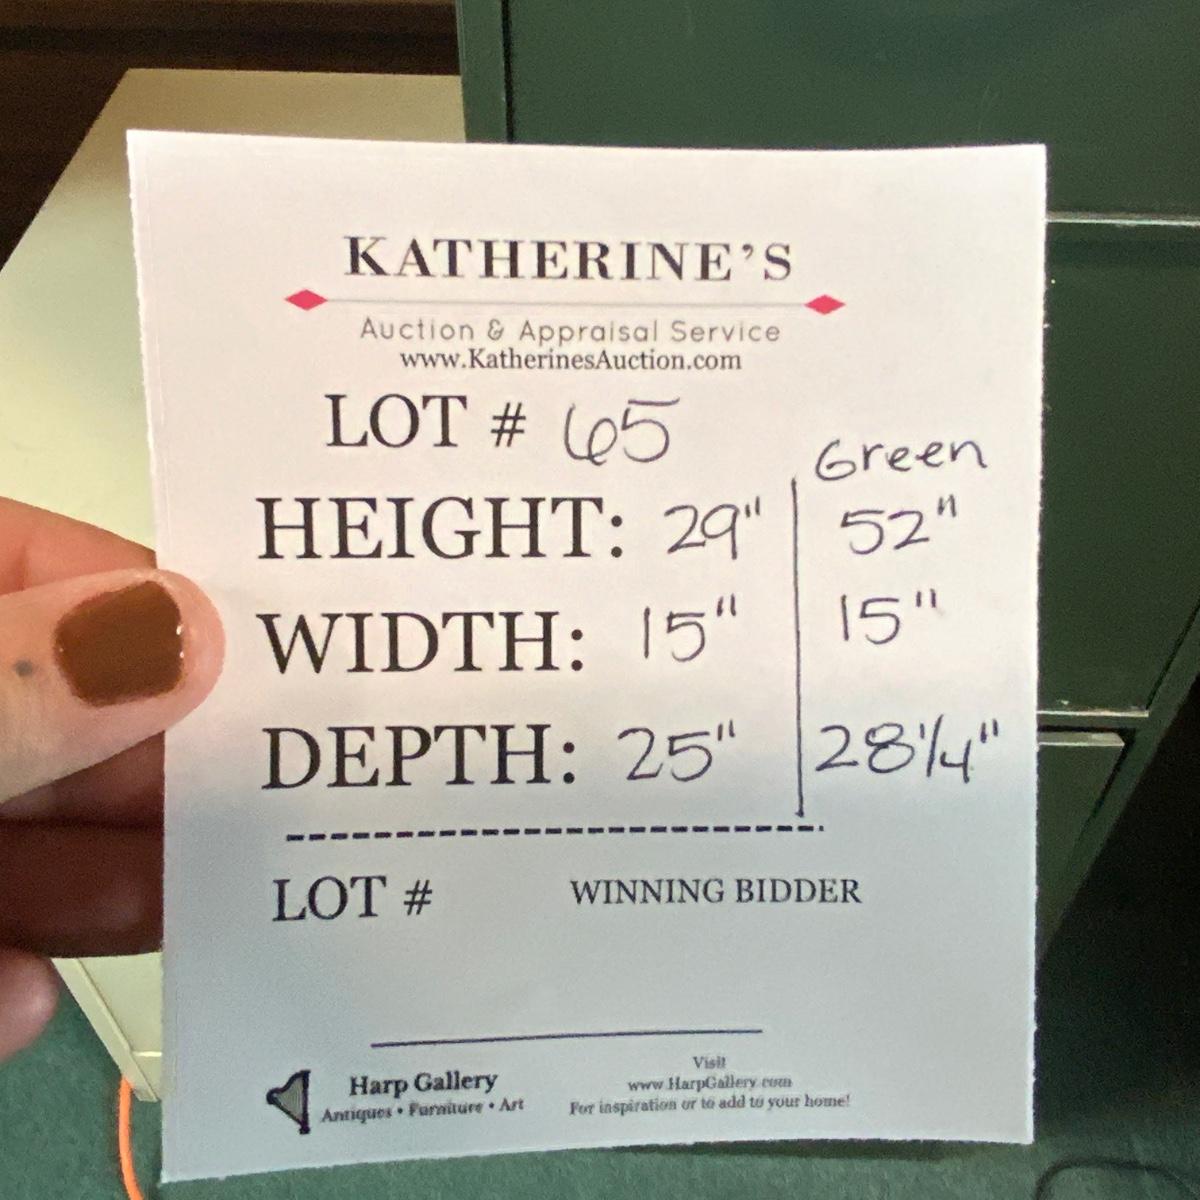 KATHERINE'S
Auction & Appraisal Service
www.KatherinesAuction.com
LOT # 65
Green
HEIGHT: 29" 52"
WIDTH: 15" 15"
DEPTH: 25" 28 1/4"
LOT # WINNING BIDDER
Harp Gallery
Antiques • Furniture • Art
Visit
www.HarpGallery.com
For inspiration or to add to your home!